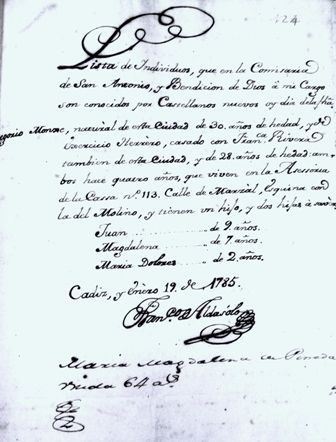 124
Lista de Individuos, que en la Comisaria
de San Antonio, y Bendicion de Dios â mi Cargo
son conocidos por Castellanos nuevos oy dia de la fha
egorio Monge, natural de esta Ciudad de 30. años de hedad, y de
Exercicio Herrero, casado con Fran.ca Rivera
tambien de esta Ciudad, y de 28. años de hedad: am-
bos hace quatro años, que viven en la Asesoria
de la Cassa n.º 113. Calle de Marzal, Esquina con
la del Molino, y tienen un hijo, y dos hijas â
Juan de 9. años.
Magdalena de 7. años.
Maria Dolores de 2. años.
Cadiz, y Enero 19. de 1785.
Fran.co Aldasolo
Maria Magdalena
Viuda 64 a.s